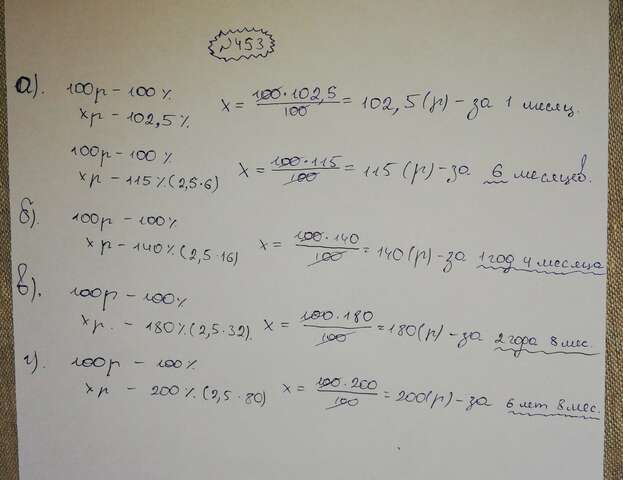 №453
а). 100р – 100% x = 100·102,5/100 = 102,5(р) – за 1 месяц.
xр – 102,5%
100р – 100% x = 100·115/100 = 115(р) – за 6 месяцев.
xр – 115%(2,5·6)
б). 100р – 100% x = 100·140/100 = 140(р) – за 1 год 4 месяца
xр – 140%(2,5·16)
в). 100р – 100% x = 100·180/100 = 180(р) – за 2 года 8 мес.
xр. – 180%(2,5·32)
г). 100р – 100% x = 100·200/100 = 200(р) – за 6 лет 8 мес.
xр – 200%(2,5·80)